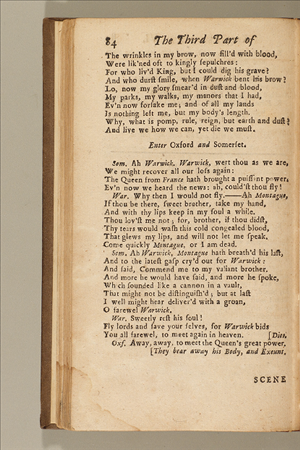 84 The Third Part of
The wrinkles in my brow, now fill'd with blood,
Were lik'ned oft to kingly sepulchres:
For who liv'd King, but I could dig his grave?
And who durst smile, when Warwick bent his brow?
Lo, now my glory smear'd in dust and blood,
My parks, my walks, my manors that I had,
Ev'n now forsake me; and of all my lands
Is nothing left me, but my body's length.
Why, what is pomp, rule, reign, but earth and dust?
And live we how we can, yet die we must.
Enter Oxford and Somerset.
Som. Ah Warwick, Warwick, wert thou as we are,
We might recover all our loss again:
The Queen from France hath brought a puissant power,
Ev'n now we heard the news: ah, could'st thou fly!
War. Why then I would not fly.——Ah Montague,
If thou be there, sweet brother, take my hand,
And with thy lips keep in my soul a while.
Thou lov'st me not; for, brother, if thou didst,
Thy tears would wash this cold congealed blood,
That glews my lips, and will not let me speak.
Come quickly Montague, or I am dead.
Som. Ah Warwick, Montague hath breath'd his last,
And to the latest gasp cry'd out for Warwick:
And said, Commend me to my valiant brother.
And more he would have said, and more he spoke,
Which sounded like a cannon in a vault,
That might not be distinguish'd; but at last
I well might hear deliver'd with a groan,
O farewel Warwick.
War. Sweetly rest his soul!
Fly lords and save your selves, for Warwick bids
You all farewel, to meet again in heaven. [Dies.
Oxf. Away, away, to meet the Queen's great power.
[They bear away his Body, and Exeunt.
SCENE